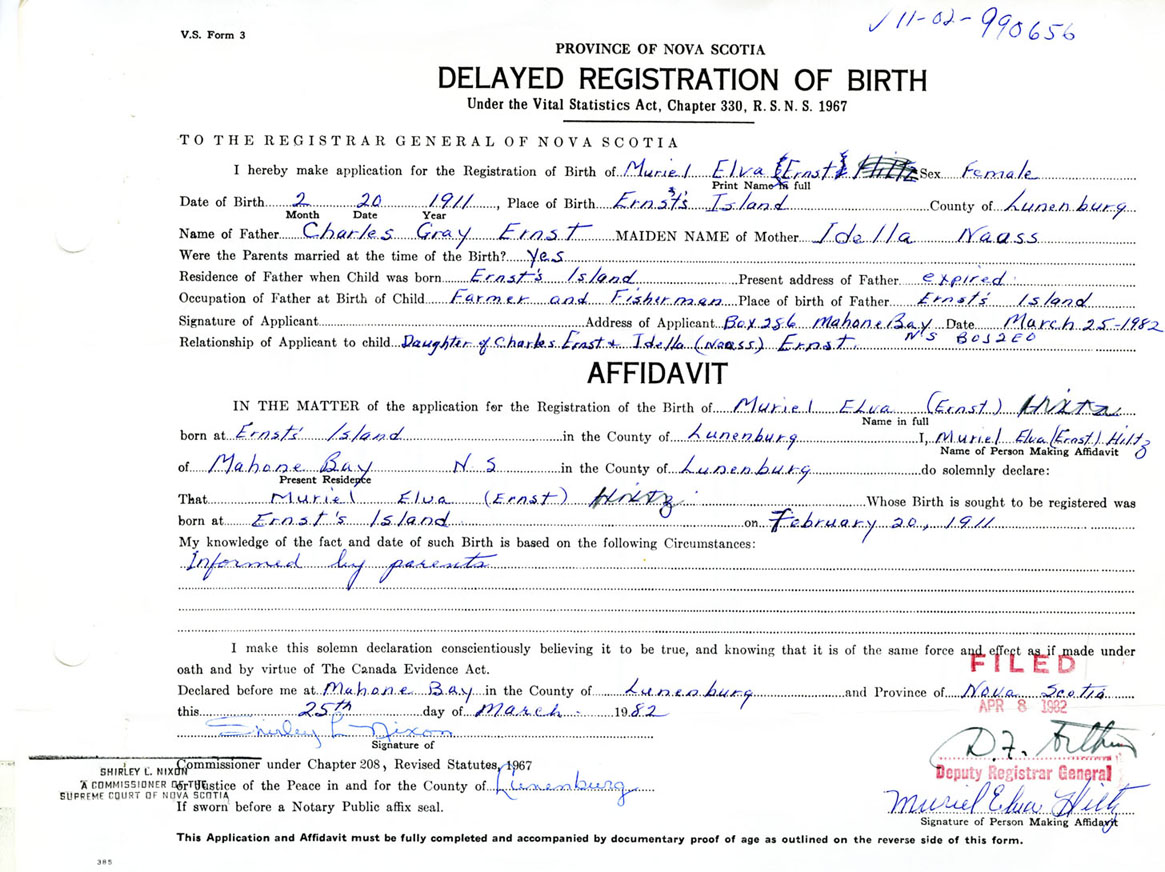 V.S. Form 3
√ 11-02-990656
PROVINCE OF NOVA SCOTIA
DELAYED REGISTRATION OF BIRTH
Under the Vital Statistics Act, Chapter 330, R. S. N. S. 1967
TO THE REGISTRAR GENERAL OF NOVA SCOTIA
I hereby make application for the Registration of Birth of Muriel Elva {Ernst} Hiltz Sex Female
Print Name in full
Date of Birth 2 20 1911, Place of Birth Ernst's Island County of Lunenburg
Month Date Year
Name of Father Charles Gray Ernst MAIDEN NAME of Mother Idella Naass
Were the Parents married at the time of the Birth? Yes
Residence of Father when Child was born Ernst's Island Present address of Father expired
Occupation of Father at Birth of Child Farmer and Fisherman Place of birth of Father Ernst's Island
Signature of Applicant Address of Applicant Box 286 Mahone Bay Date March 25-1982
NS B0J2E0
Relationship of Applicant to child Daughter of Charles Ernst + Idella (Naass) Ernst
AFFIDAVIT
IN THE MATTER of the application for the Registration of the Birth of Muriel Elva (Ernst) Hiltz
Name in full
born at Ernsts' Island in the County of Lunenburg I, Muriel Elva (Ernst) Hiltz
Name of Person Making Affidavit
of Mahone Bay N S in the County of Lunenburg do solemnly declare:
Present Residence
That Muriel Elva (Ernst) Hiltz Whose Birth is sought to be registered was
born at Ernst's Island on February 20, 1911
My knowledge of the fact and date of such Birth is based on the following Circumstances:
Informed by parents
I make this solemn declaration conscientiously believing it to be true, and knowing that it is of the same force and effect as if made under
oath and by virtue of The Canada Evidence Act.
FILED
Declared before me at Mahone Bay in the County of Lunenburg and Province of Nova Scotia
this 25th day of March 1982
APR 8 1982
Shirley L Nixon
Signature of
D.F.
Commissioner under Chapter 208, Revised Statutes, 1967
SHIRLEY L. NIXON
A COMMISSIONER OF THE
SUPREME COURT OF NOVA SCOTIA
Deputy Registrar General
or Justice of the Peace in and for the County of Lunenburg
Muriel Elva Hiltz
If sworn before a Notary Public affix seal.
Signature of Person Making Affidavit
This Application and Affidavit must be fully completed and accompanied by documentary proof of age as outlined on the reverse side of this form.
385